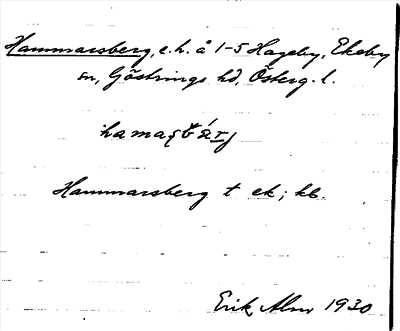 Hammarsberg, e.h. å 1-5 Hageby, Ekeby
sn, Göstrings hd, Österg. l.
Hammarsberg t ek; kb.
Erik Alm 1930